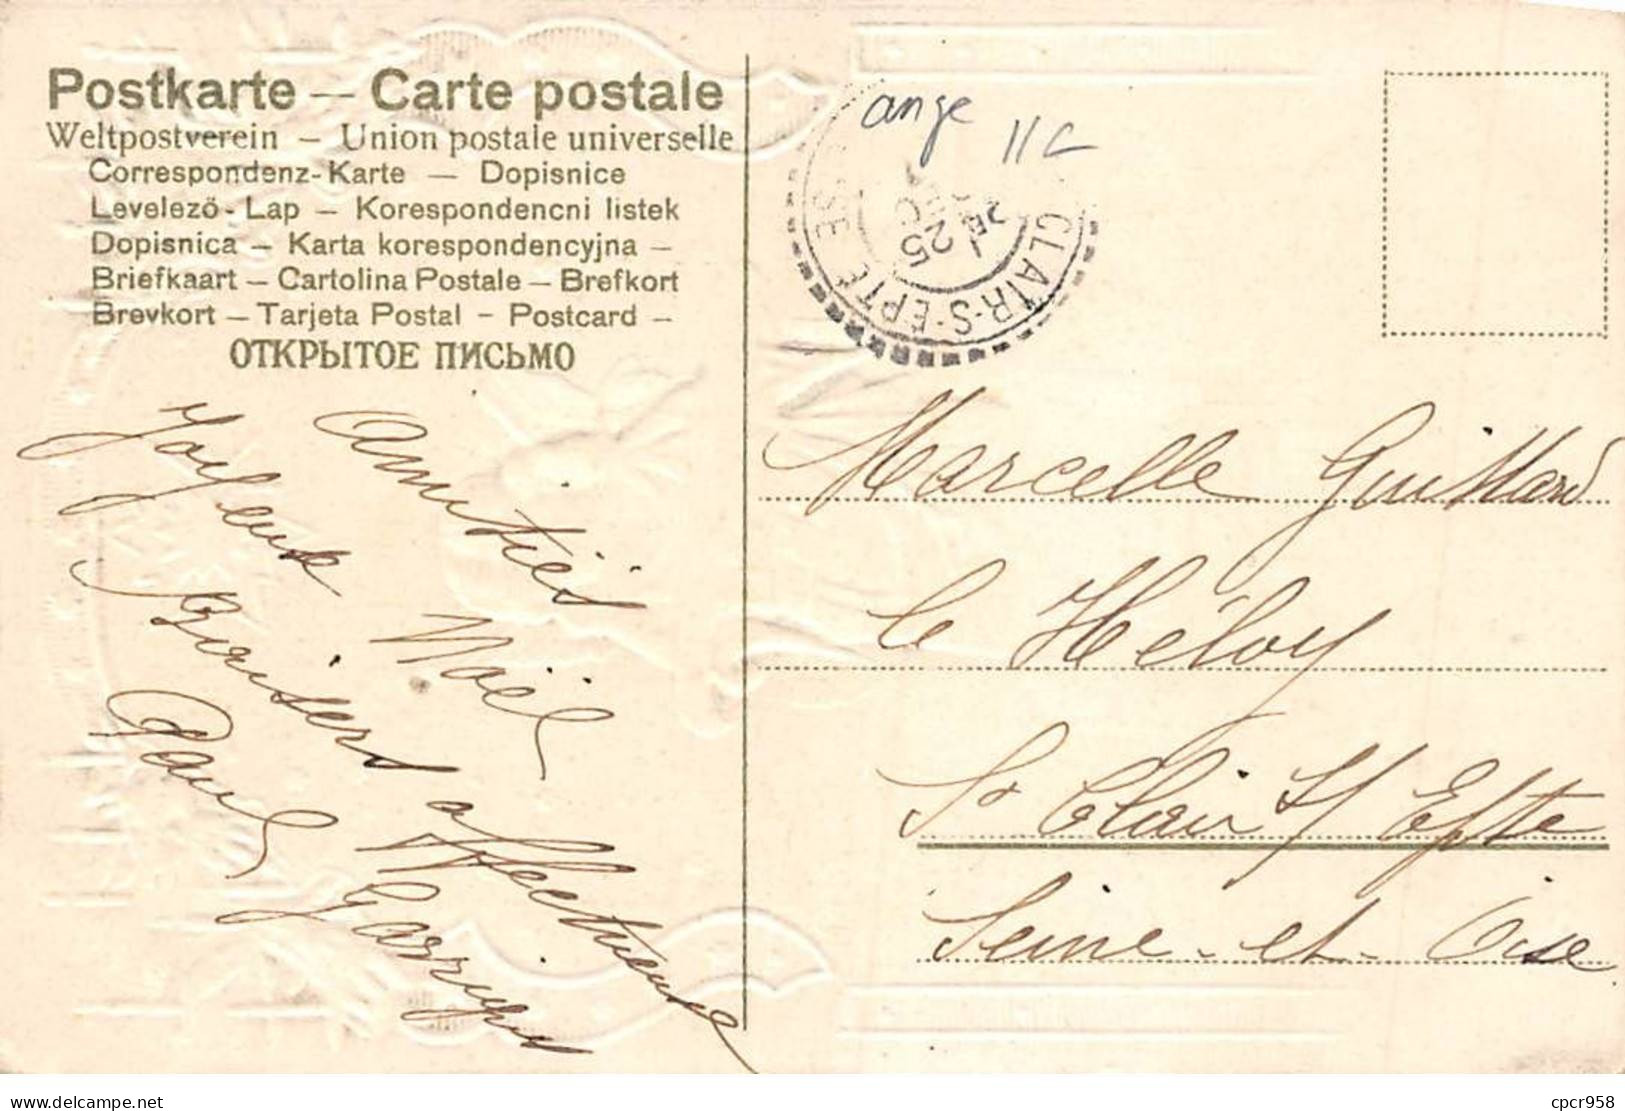 Postkarte — Carte postale
Weltpostverein — Union postale universelle
Correspondenz-Karte — Dopisnice
Levelezö-Lap — Korespondencni listek
Dopisnica — Karta korespondencyjna —
Briefkaart — Cartolina Postale — Brefkort
Brevkort — Tarjeta Postal - Postcard —
ОТКРЫТОЕ ПИСЬМО
ange
11C
CLAIR-S-EPTE
25
Amitiés
Joyeux Noël
Baisers affectueux
Paul Garrigues
Marcelle Guillard
le Héloy
St Clair s/ Epte
Seine-et-Oise
cpcr958